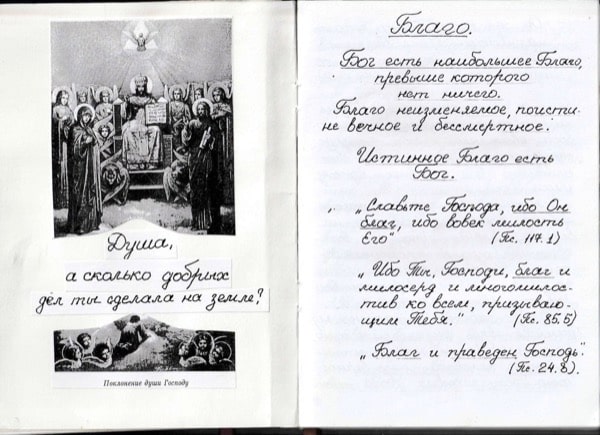 Душа,
а сколько добрых
дел ты сделала на земле?
Поклонение души Господу
Благо.
Бог есть наибольшее Благо,
превыше которого
нет ничего.
Благо неизменяемое, поисти-
не вечное и бессмертное.
Истинное Благо есть
Бог.
„Славьте Господа, ибо Он
благ, ибо вовек милость
Его" (Пс. 117.1)
„Ибо Ты, Господи, благ и
милосерд и многомилос-
тив ко всем, призываю-
щим Тебя." (Пс. 85.5)
„Благ и праведен Господь".
(Пс. 24.8).